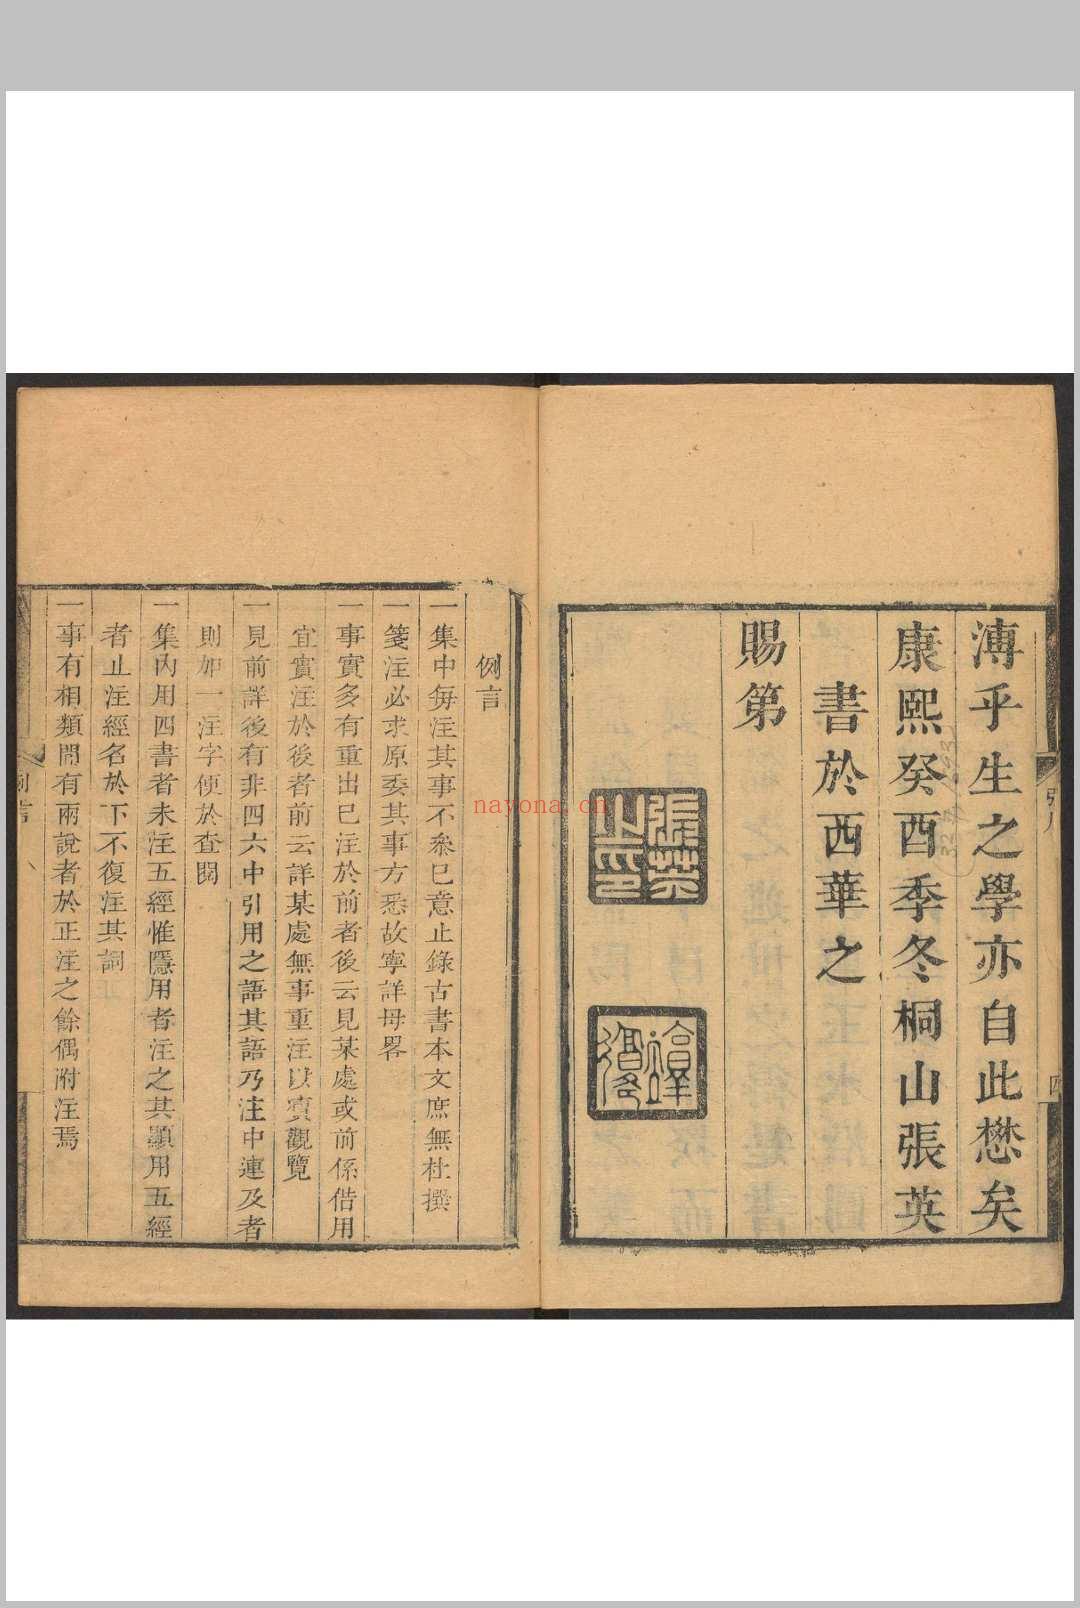 溥乎生之學亦自此懋矣
康熙癸酉季冬桐山張英
書於西華之
賜第
張英之印
例言
一集中每注其事不叅已意止錄古書本文庶無杜撰
一箋注必求原委其事方悉故寧詳毋畧
一事實多有重出已注於前者後云見某處或前係借用
宜實注於後者前云詳某處無事重注以實觀覽
一見前詳後有非四六中引用之語其語乃注中連及者
則加一注字便於查閱
一集內用四書者未注五經惟隱用者注之其顯用五經
者止注經名於下不復注其詞
一事有相類間有兩說者於正注之餘偶附注焉
例言
nayona.cn